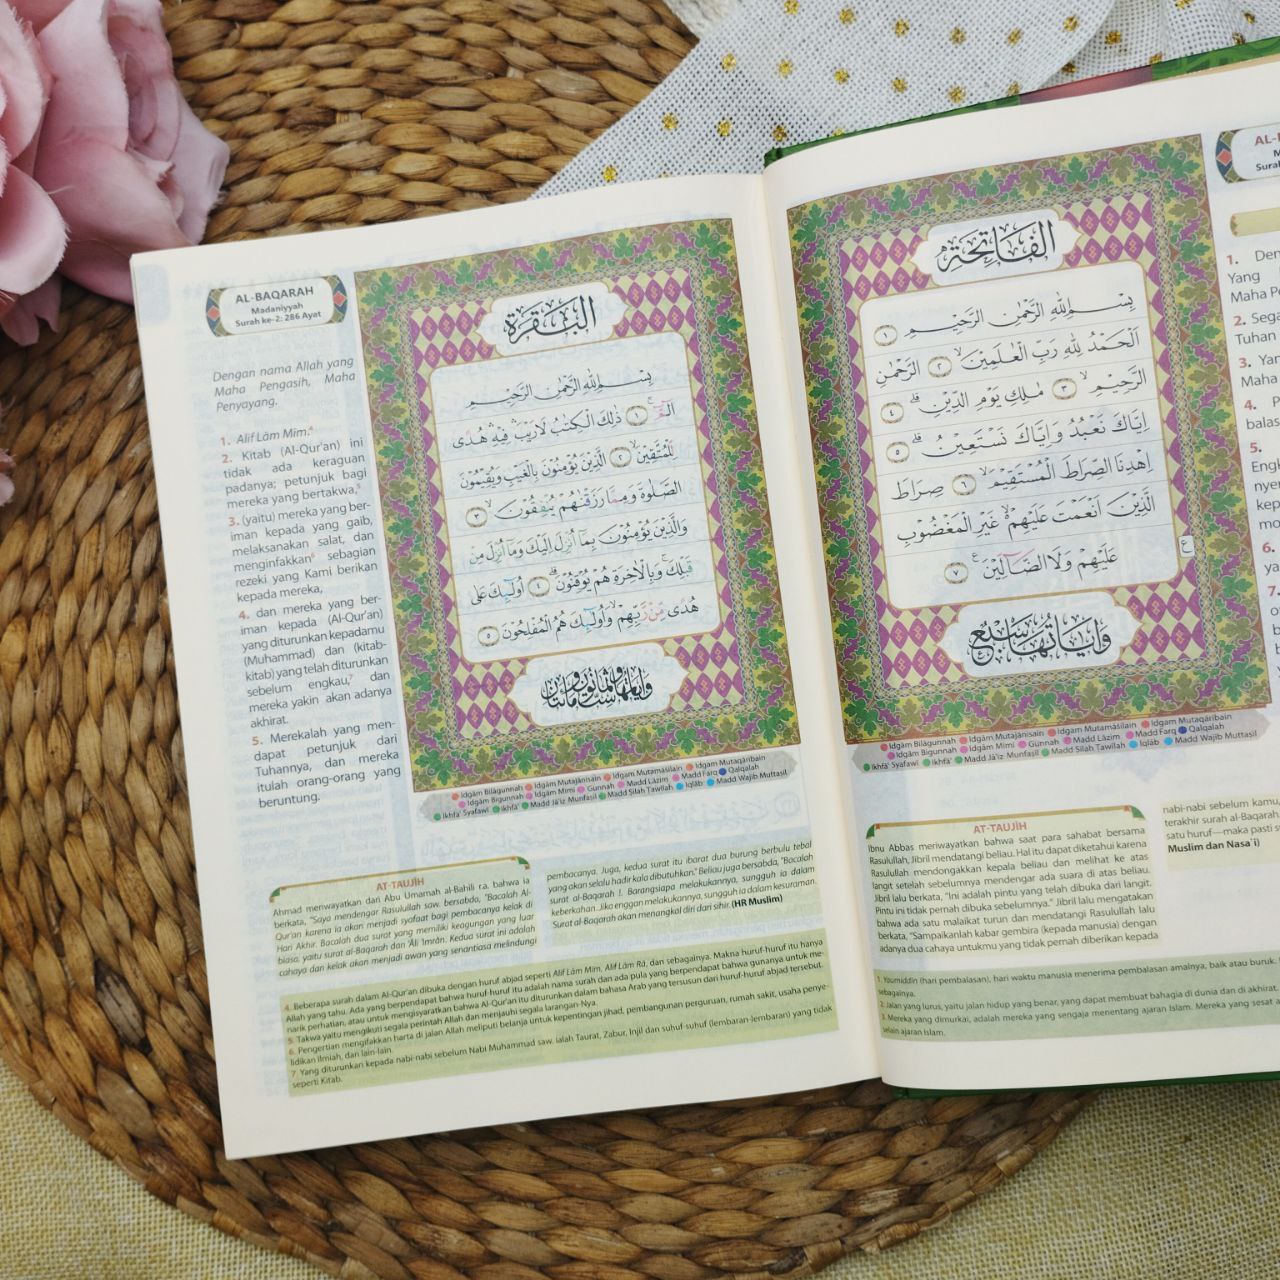 AL-BAQARAH
Madaniyyah
Surah ke-2: 286 Ayat
Dengan nama Allah yang
Maha Pengasih, Maha
Penyayang.
1. Alif Lām Mim.⁴
2. Kitab (Al-Qur'an) ini
tidak ada keraguan
padanya; petunjuk bagi
mereka yang bertakwa,⁵
3. (yaitu) mereka yang ber-
iman kepada yang gaib,
melaksanakan salat, dan
menginfakkan⁶ sebagian
rezeki yang Kami berikan
kepada mereka,
4. dan mereka yang ber-
iman kepada (Al-Qur'an)
yang diturunkan kepadamu
(Muhammad) dan (kitab-
kitab) yang telah diturunkan
sebelum engkau,⁷ dan
mereka yakin akan adanya
akhirat.
5. Merekalah yang men-
dapat petunjuk dari
Tuhannya, dan mereka
itulah orang-orang yang
beruntung.
البقرة
بِسْمِ اللهِ الرَّحْمٰنِ الرَّحِيْمِ
الۤمّۤ ۚ ١ ذٰلِكَ الْكِتٰبُ لَا رَيْبَ ۛ فِيْهِ ۛ هُدًى
لِّلْمُتَّقِيْنَ ۙ ٢ الَّذِيْنَ يُؤْمِنُوْنَ بِالْغَيْبِ وَيُقِيْمُوْنَ
الصَّلٰوةَ وَمِمَّا رَزَقْنٰهُمْ يُنْفِقُوْنَ ۙ ٣
وَالَّذِيْنَ يُؤْمِنُوْنَ بِمَآ اُنْزِلَ اِلَيْكَ وَمَآ اُنْزِلَ مِنْ
قَبْلِكَ ۚ وَبِالْاٰخِرَةِ هُمْ يُوْقِنُوْنَ ۗ ٤ اُولٰۤىِٕكَ عَلٰى
هُدًى مِّنْ رَّبِّهِمْ ۙ وَاُولٰۤىِٕكَ هُمُ الْمُفْلِحُوْنَ ٥
Idgām Bilāgunnah Idgam Mutajānisain Idgam Mutamāsilain Idgam Mutaqāribain
Idgām Bigunnah Idgām Mimi Gunnah Madd Lāzim Madd Farq Qalqalah
Ikhfa' Syafawi Ikhfa' Madd Jā'iz Munfasil Madd Silah Tawilah Iqlāb Madd Wajib Muttasil
AT-TAUJĪH
Ahmad meriwayatkan dari Abu Umamah al-Bahili r.a. bahwa ia
berkata, "Saya mendengar Rasulullah saw. bersabda, "Bacalah Al-
Qur'an karena ia akan menjadi syafaat bagi pembacanya kelak di
Hari Akhir. Bacalah dua surat yang memiliki keagungan yang luar
biasa, yaitu surat al-Baqarah dan 'Āli 'Imrān. Kedua surat ini adalah
cahaya dan kelak akan menjadi awan yang senantiasa melindungi
pembacanya. Juga, kedua surat itu ibarat dua burung berbulu tebal
yang akan selalu hadir kala dibutuhkan." Beliau juga bersabda, "Bacalah
surat al-Baqarah !. Barangsiapa melakukannya, sungguh ia dalam
keberkahan. Jika enggan melakukannya, sungguh ia dalam kesuraman.
Surat al-Baqarah akan menangkal diri dari sihir. (HR Muslim)
4. Beberapa surah dalam Al-Qur'an dibuka dengan huruf abjad seperti Alif Lām Mim, Alif Lām Rā, dan sebagainya. Makna huruf-huruf itu hanya
Allah yang tahu. Ada yang berpendapat bahwa huruf-huruf itu adalah nama surah dan ada pula yang berpendapat bahwa gunanya untuk me-
narik perhatian, atau untuk mengisyaratkan bahwa Al-Qur'an itu diturunkan dalam bahasa Arab yang tersusun dari huruf-huruf abjad tersebut.
5. Takwa yaitu mengikuti segala perintah Allah dan menjauhi segala larangan-Nya.
6. Pengertian menginfakkan harta di jalan Allah meliputi belanja untuk kepentingan jihad, pembangunan perguruan, rumah sakit, usaha penye-
lidikan ilmiah, dan lain-lain.
7. Yang diturunkan kepada nabi-nabi sebelum Nabi Muhammad saw. ialah Taurat, Zabur, Injil dan suhuf-suhuf (lembaran-lembaran) yang tidak
seperti Kitab.
الفاتحة
بِسْمِ اللهِ الرَّحْمٰنِ الرَّحِيْمِ ١
اَلْحَمْدُ لِلّٰهِ رَبِّ الْعٰلَمِيْنَ ۙ ٢ الرَّحْمٰنِ
الرَّحِيْمِ ۙ ٣ مٰلِكِ يَوْمِ الدِّيْنِ ۗ ٤
اِيَّاكَ نَعْبُدُ وَاِيَّاكَ نَسْتَعِيْنُ ۗ ٥
اِهْدِنَا الصِّرَاطَ الْمُسْتَقِيْمَ ۙ ٦ صِرَاطَ
الَّذِيْنَ اَنْعَمْتَ عَلَيْهِمْ ۙ غَيْرِ الْمَغْضُوْبِ
عَلَيْهِمْ وَلَا الضَّاۤلِّيْنَ ࣖ ٧
ع
واياتها سبع
Idgām Bilāgunnah Idgam Mutajānisain Idgam Mutamāsilain Idgam Mutaqāribain
Idgām Bigunnah Idgām Mimi Gunnah Madd Lāzim Madd Farq Qalqalah
Ikhfa' Syafawi Ikhfa' Madd Jā'iz Munfasil Madd Silah Tawilah Iqlāb Madd Wajib Muttasil
AT-TAUJĪH
Ibnu Abbas meriwayatkan bahwa saat para sahabat bersama
Rasulullah, Jibril mendatangi beliau. Hal itu dapat diketahui karena
Rasulullah mendongakkan kepala beliau dan melihat ke atas
langit setelah sebelumnya mendengar ada suara di atas beliau.
Jibril lalu berkata, "Ini adalah pintu yang telah dibuka dari langit.
Pintu ini tidak pernah dibuka sebelumnya." Jibril lalu mengatakan
bahwa ada satu malaikat turun dan mendatangi Rasulullah lalu
berkata, "Sampaikanlah kabar gembira (kepada manusia) dengan
adanya dua cahaya untukmu yang tidak pernah diberikan kepada
nabi-nabi sebelum kamu,
terakhir surah al-Baqarah.
satu huruf—maka pasti
Muslim dan Nasa'i)
1. Youmiddin (hari pembalasan), hari waktu manusia menerima pembalasan amalnya, baik atau buruk.
sebagainya.
2. Jalan yang lurus, yaitu jalan hidup yang benar, yang dapat membuat bahagia di dunia dan di akhirat.
3. Mereka yang dimurkai, adalah mereka yang sengaja menentang ajaran Islam. Mereka yang sesat
selain ajaran Islam.
1.
Yang
Maha
2.
Tuhan
3.
Maha
4.
balas
5.
6.
7.